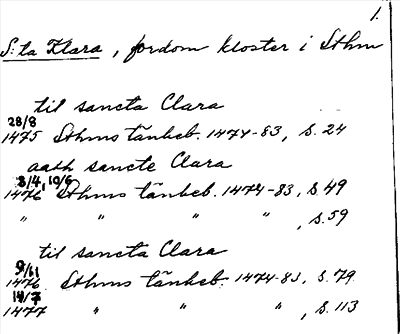 1.
S:ta Klara, fordom kloster i Sthm
til sancta Clara
28/8
1475 Sthms tänkeb. 1474-83, s. 24
aath sancte Clara
3/4, 10/6
1476 Sthms tänkeb. 1474-83, s 49
" " " " , s. 59
til sancta Clara
9/11
1476 Sthms tänkeb. 1474-83, s. 79
14/7
1477 " " " , s. 113